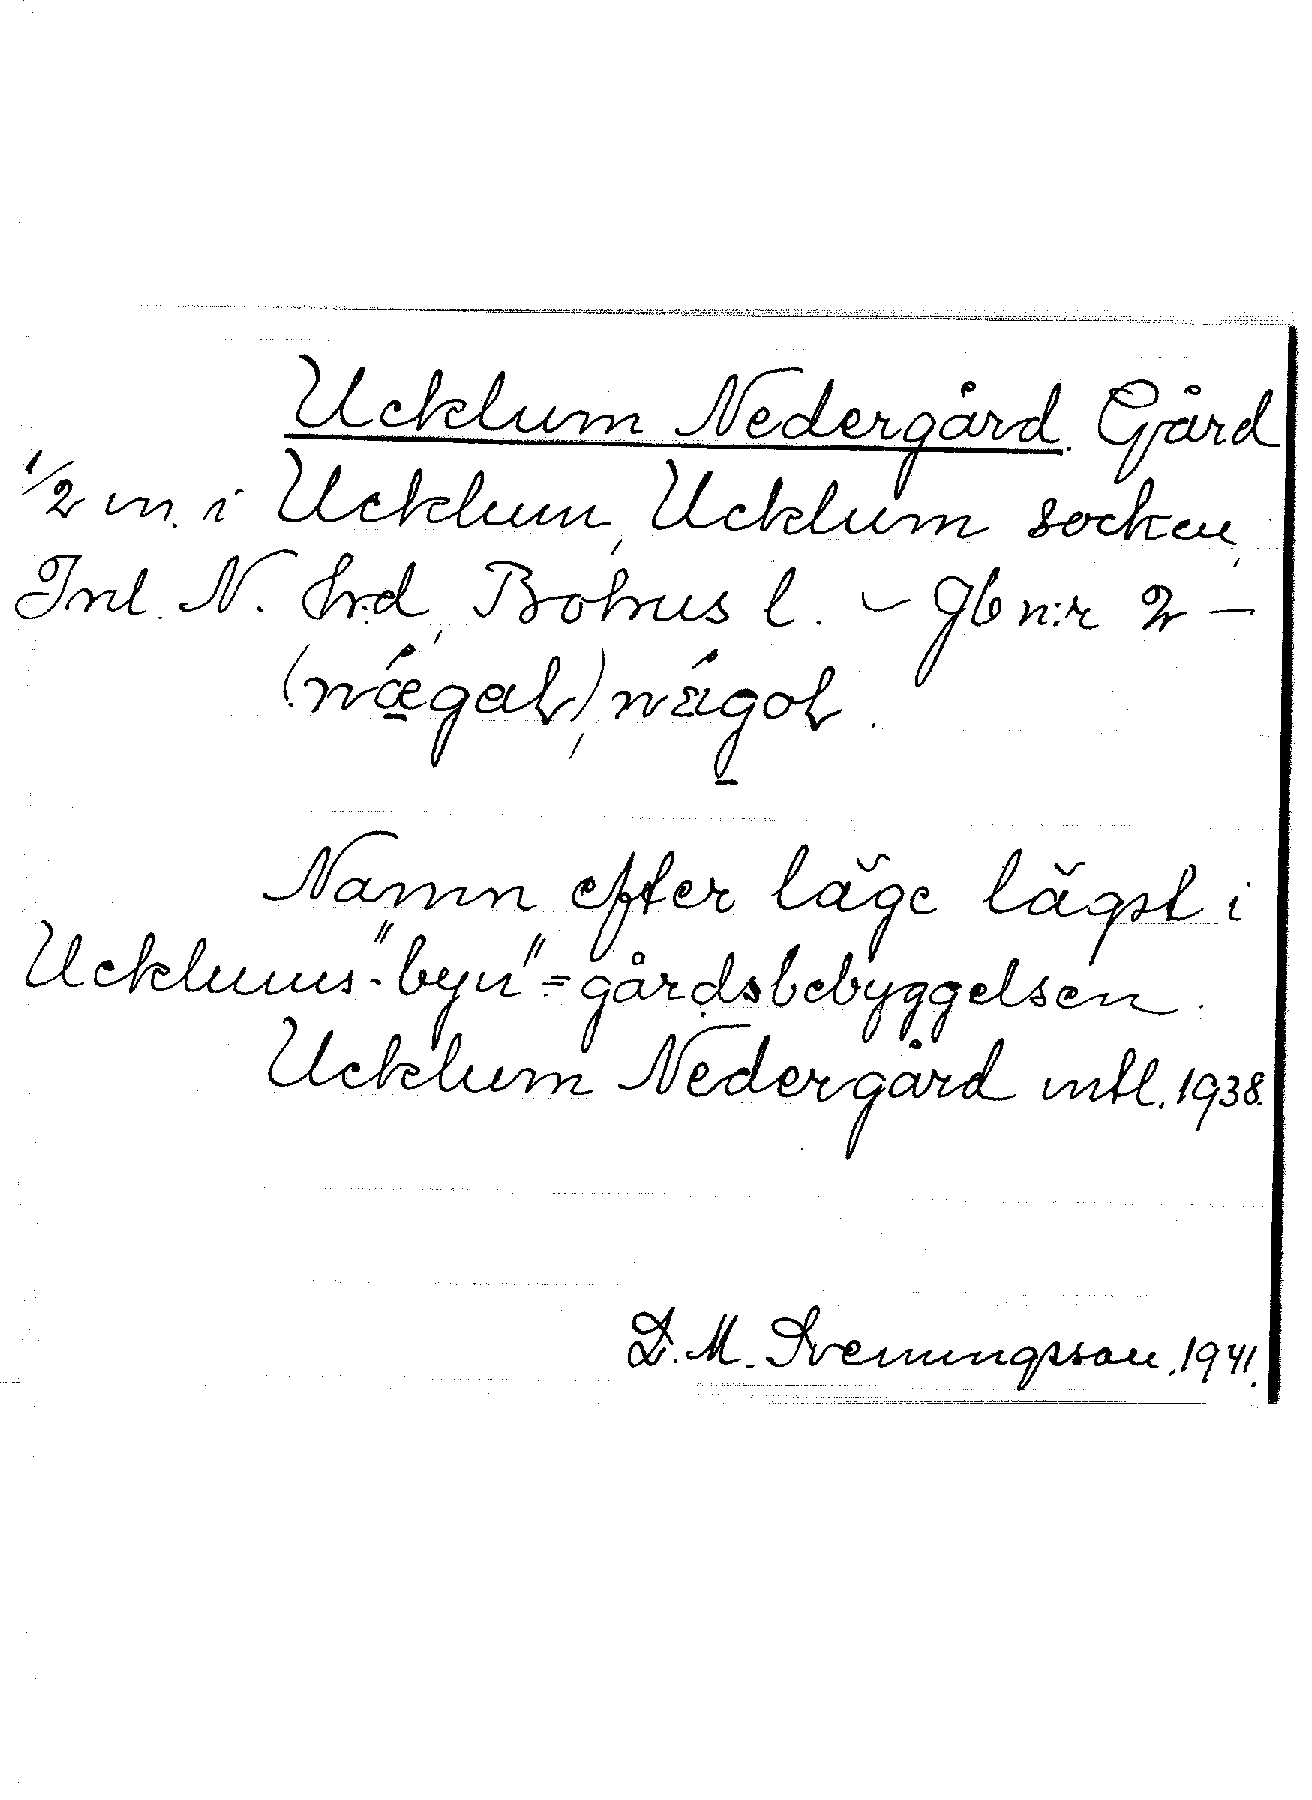 Ucklum Nedergård. Gård
1/2 m. i Ucklum, Ucklum socken,
Inl. N. hrd, Bohus l. – Jb n:r 2 –
Namn efter läge lägst i
Ucklums-"byn" = gårdsbebyggelsen.
Ucklum Nedergård mtl. 1938.
D. M. Sveningsson. 1941.